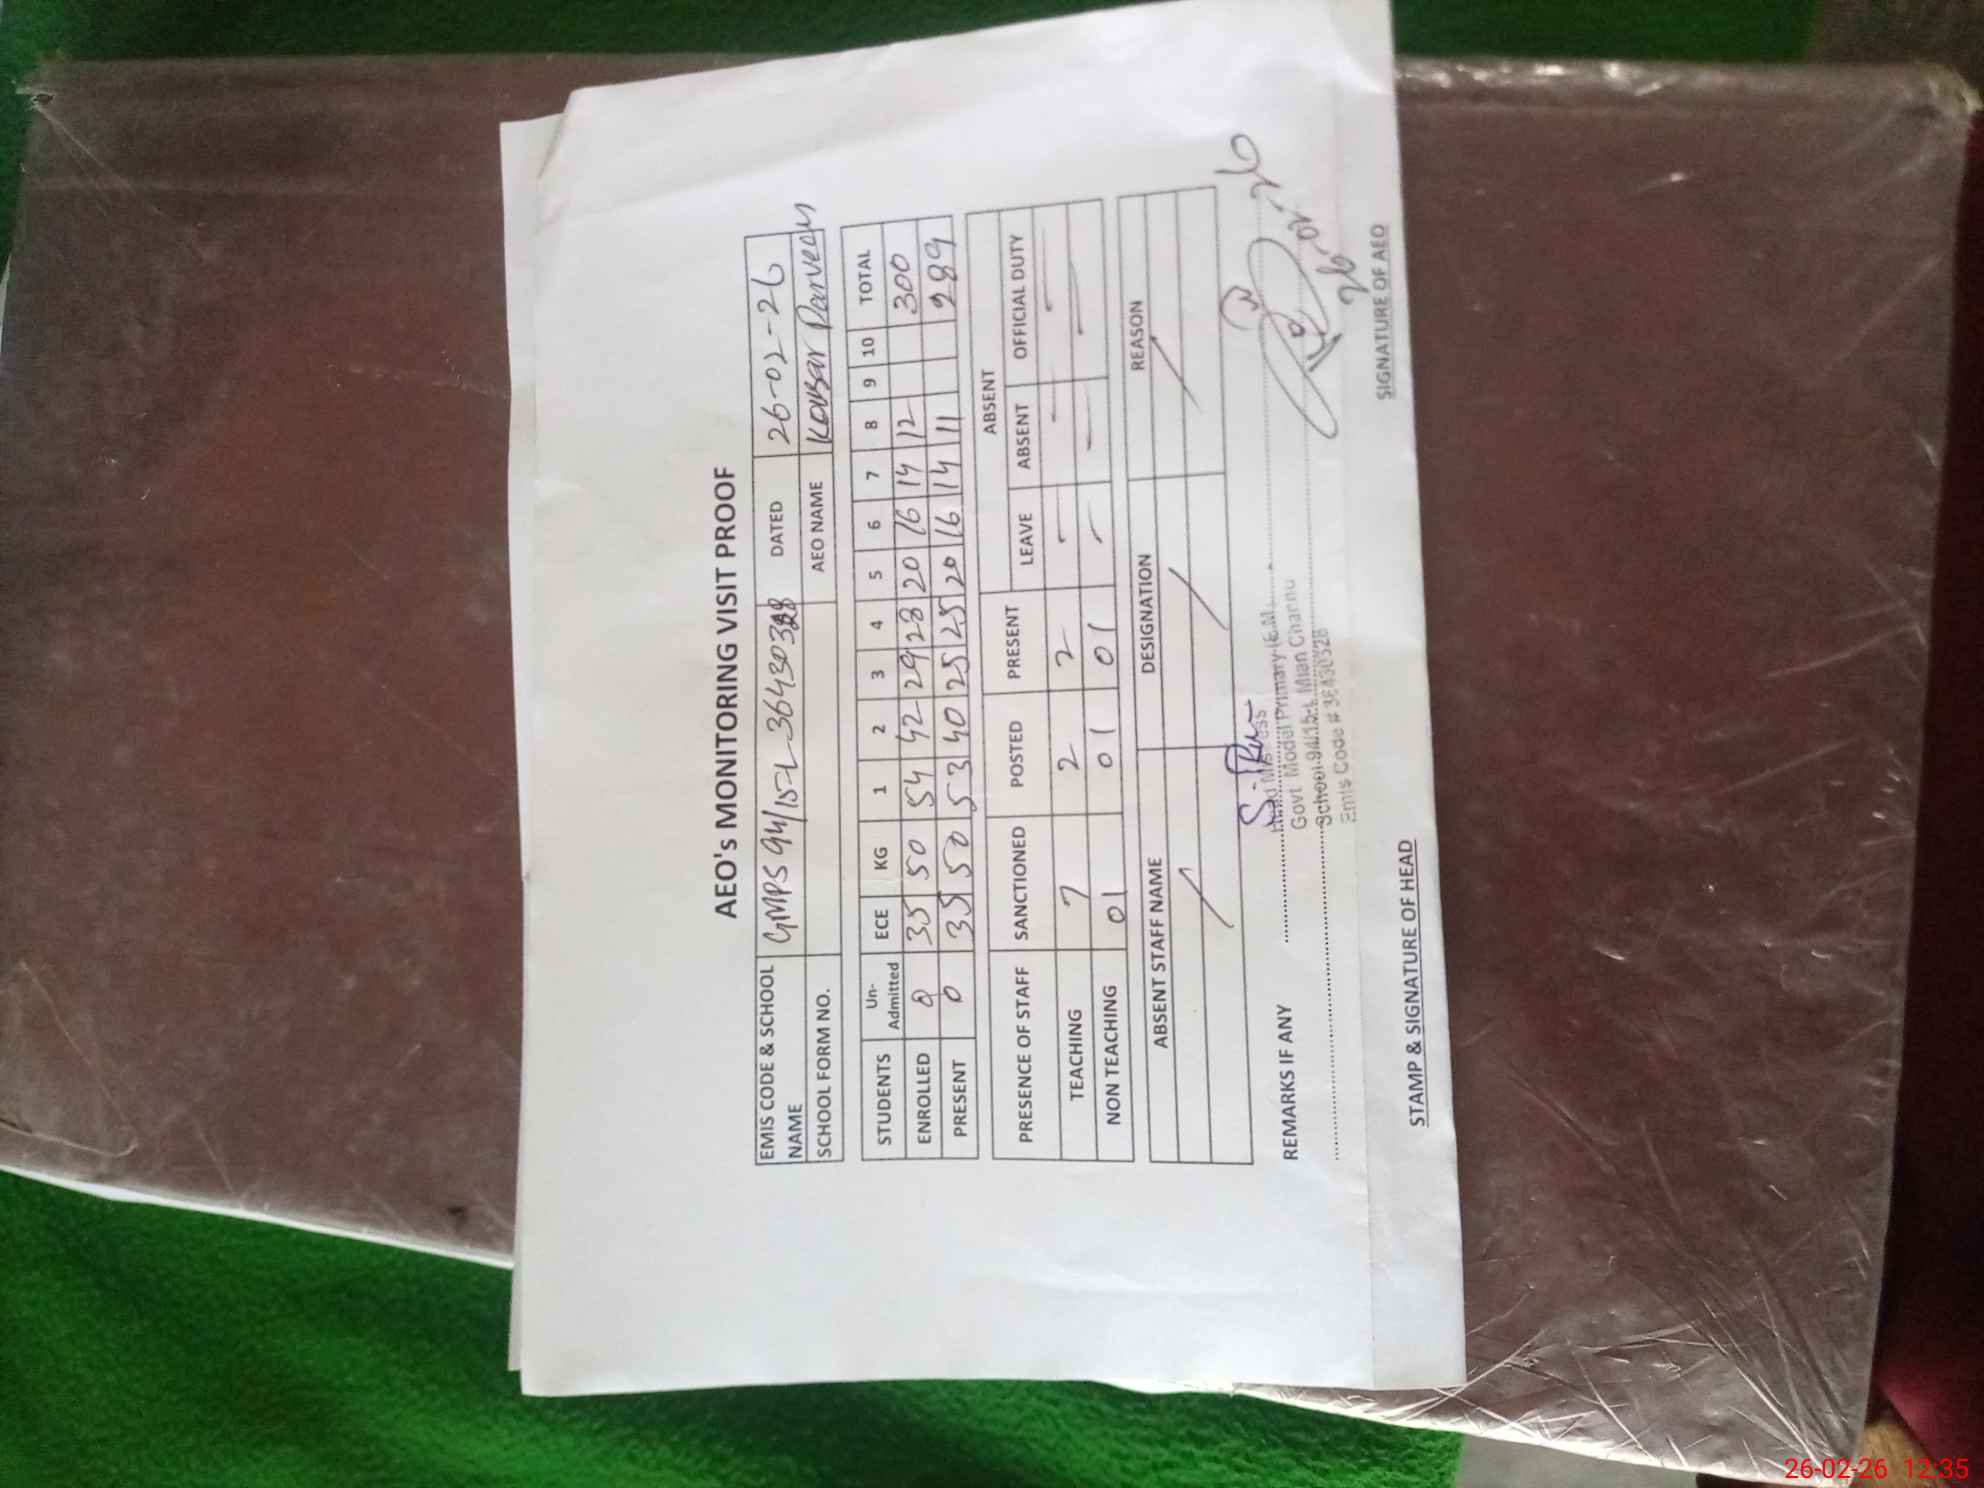 AEO's MONITORING VISIT PROOF
EMIS CODE & SCHOOL NAME GMPS 94/15-L 36430328 DATED 26-02-26
SCHOOL FORM NO. AEO NAME Kousar Parveen
STUDENTS Un-Admitted ECE KG 1 2 3 4 5 6 7 8 9 10 TOTAL
ENROLLED 0 35 50 54 42 29 28 20 16 14 12 300
PRESENT 0 35 50 53 40 25 25 20 16 14 11 289
PRESENCE OF STAFF SANCTIONED POSTED PRESENT ABSENT
LEAVE ABSENT OFFICIAL DUTY
TEACHING 7 2 2 - - -
NON TEACHING 01 01 01 - - -
ABSENT STAFF NAME DESIGNATION REASON
/ / /
REMARKS IF ANY
Govt Model Primary (E.M)
School 94/15-L Mian Channu
Emis Code # 36430328
26-02-26
STAMP & SIGNATURE OF HEAD SIGNATURE OF AEO
26-02-26 12:35